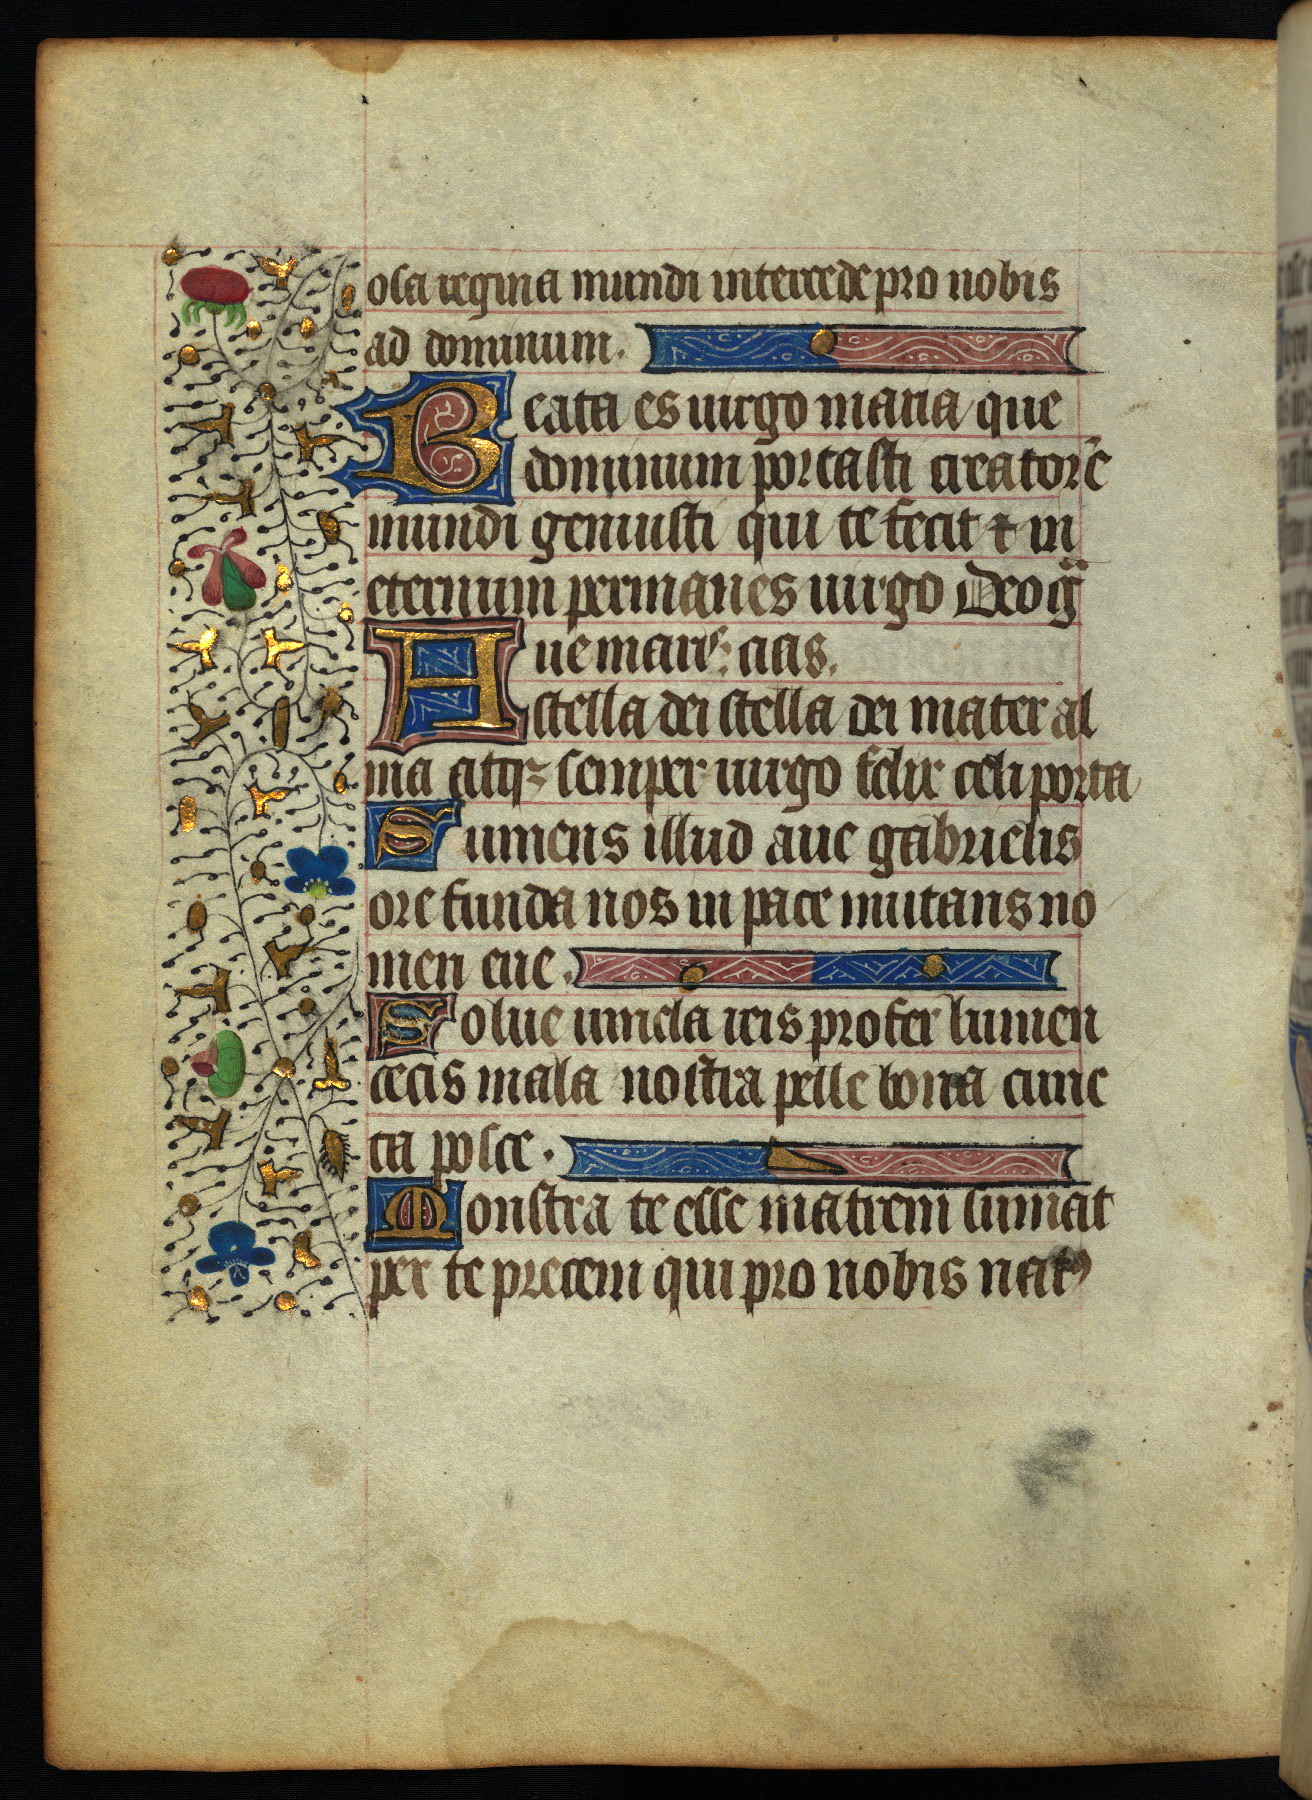 osa regina mundi intercede pro nobis
ad dominum.
Beata es uirgo maria que
dominum portasti creatorē
mundi genuisti qui te fecit ⁊ in
eternum permanes uirgo Deo gͣ
Aue maris
stella dei stella dei mater al
ma atqꝫ semper uirgo felix celi porta
Sumens illud aue gabrielis
ore funda nos in pace mutans no
men eue.
Solue uincla reis profer lumen
cecis mala nostra pelle bona cunc
ta posce.
Monstra te esse matrem sumat
per te precem qui pro nobis natꝰ